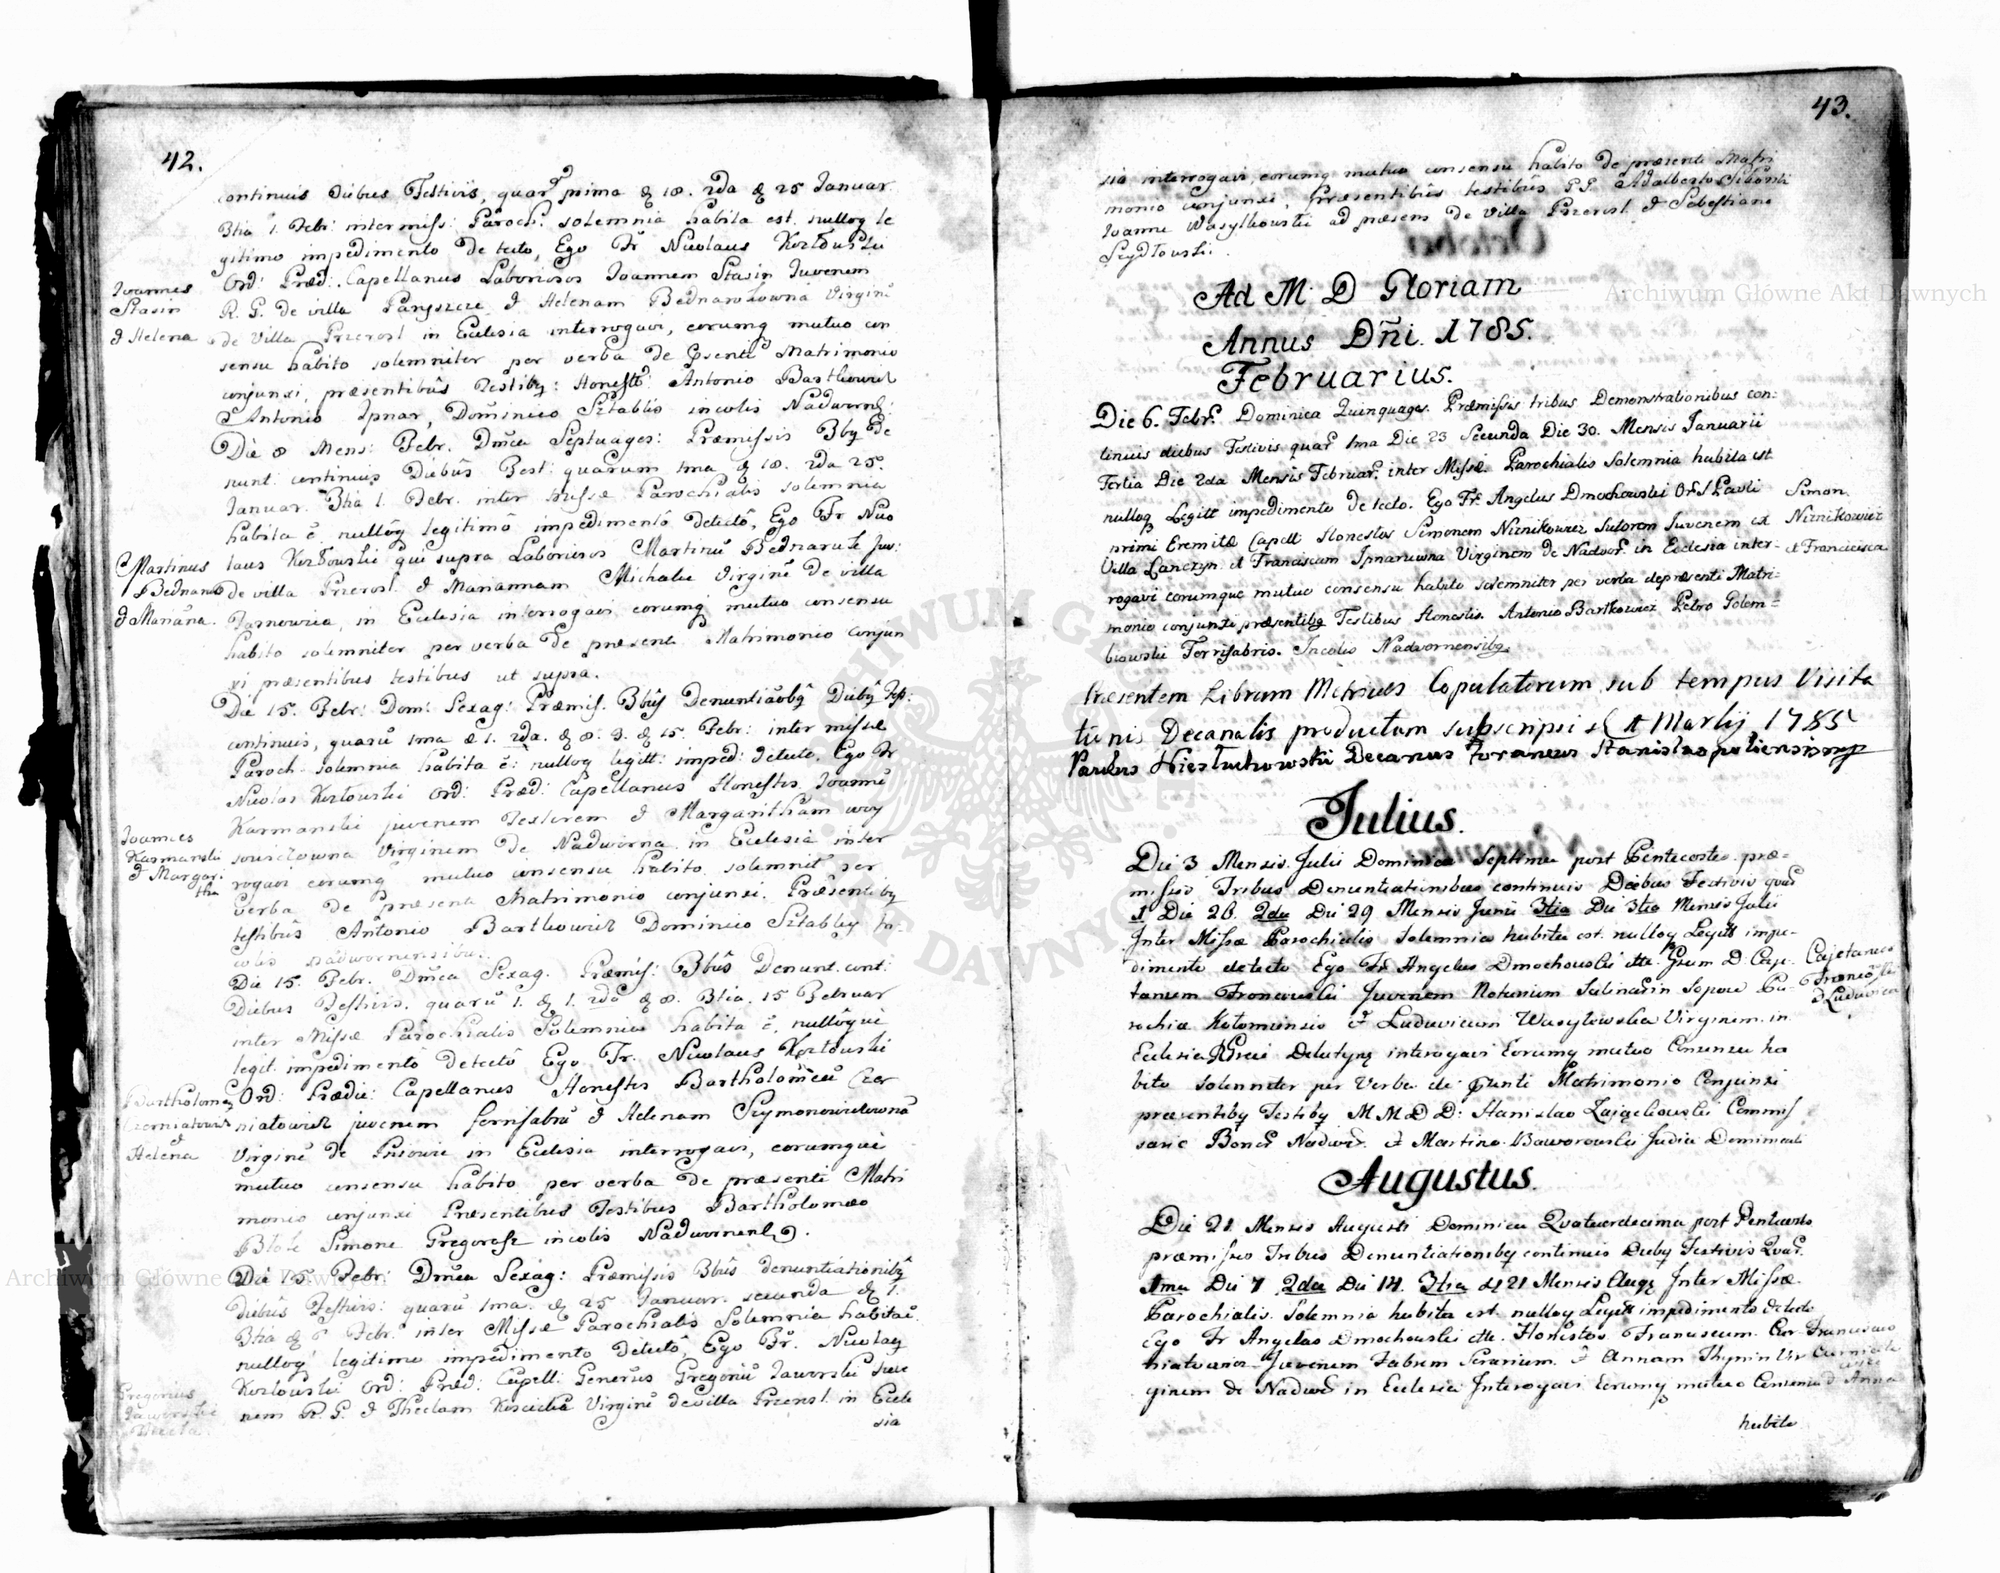 42.
continuis diebus Festivis, quar prima d 18. 2da d 25 Januar.
3tia 1. Febr: inter miss: Paroch: solemnia habita est, nulloq le
gitimo impedimento detecto, Ego Fr Nicolaus Kozłowski
Ord: Præd: Capellanus Laboriosos Joannem Stasin Juvenem
R. G. de villa & Helenam Bednarzowna Virginē
de Villa Przerosl in Ecclesia interrogavi, eorumq mutuo con
sensu habito solemniter per verba de psenti Matrimonio
conjunxi, præsentibus Testibq: Honestt: Antonio Bartkowicz
Antonio Ipnar, Dominico Sztablis incolis Nadworn:
Joannes
Stasin
& Helena
Die 8 Mens: Febr. Dnica Septuages: Præmissis 3bq De
nunt: continuis Diebus Fest: quarum 1ma d 18. 2da 25.
Januar. 3tia 1. Febr. inter missæ Parochialis solemnia
habita ē nulloq legitimo impedimento detecto, Ego Fr Nico
laus Kozłowski qui supra Laboriosos Martinū Bednaruk Juv:
de villa Przerosl. & Mariannam Michalu Virginē de villa
Tarnowica, in Ecclesia interrogavi eorumq mutuo consensu
habito solemniter per verba de præsenti Matrimonio conjun
xi præsentibus testibus ut supra.
Martinus
Bednaru
& Mariāna.
Die 15. Febr: Dom: Sexag: Præmis. 3bus Denuntiaõbq Diebq Fest:
continuis, quarū 1ma d 1. 2da. d 8. 3. d 15. Febr: inter missæ
Paroch. solemnia habita ē: nulloq legitt: imped: detecto, Ego Fr
Nicolas Kozłowski Ord: Præd: Capellanus Honestos Joannē
Karmanski juvenem & Margaritham woy
Virginem de Nadworna in Ecclesia inter
rogavi eorumq mutuo consensu habito solemnit per
verba de præsenti Matrimonio conjunxi. Præsentibq
testibus Antonio Bartkowicz Dominico Sztablis in-
colis Nadwornensibus.
Joannes
Karmanski
& Margari
tha
Die 15. Febr. Dnica Sexag. Præmis: 3bus Denunt. cont:
Diebus Festivis. quarū 1. d 1. 2da d 8. 3tia. 15 Februar
inter Missæ Parochialis Solemnia habita ē, nulloq
legit. impedimento detecto Ego Fr. Nicolaus Kozłowski
Ord: Prædic: Capellanus Honestos Bartholomæū Czer
niatowicz juvenem ferrifabrū & Helenam Szymonowiczowna
Virginē de in Ecclesia interrogavi, eorumque
mutuo consensu habito per verba de præsenti Matri
monio conjunxi Præsentibus Testibus Bartholomæo
Simone incolis Nadwornens.
Bartholomæq
Czerniatowicz
&
Helena
Die 15. Febr: Dnica Sexag: Præmissis 3bus denuntiationibq
diebus Festivis: quarū 1ma. d 25 Januar. secunda d 1.
3tia d 8 Febr. inter Missæ Parochialis Solemnia habita ē.
nulloq legitimo impedimento detecto, Ego Fr. Nicolaq
Kozłowski Ord: Præd: Capell: Generos Gregoriū Jaworski Juve
nem R. G. & Theclam Virginē de villa Przerosl. in Eccle
sia
Gregorius
Jaworski
43.
sia interrogavi, eorumq mutuo consensu habito de præsenti Matri
monio conjunxi, Præsentibus testibus Adalberto
Joanne Wasylkowski ad præsens de Villa Przerosl. & Sebastiano
Szydłowski.
Ad M. D Gloriam
Annus Dñi. 1785.
Februarius.
Die 6. Febr. Dominica Quinquages. Præmissis tribus Demonstrationibus con=
tinuis diebus Festivis quar 1ma Die 23 Secunda Die 30. Mensis Januarii
Tertia Die 2da Mensis Februar. inter Missæ Parochialis Solemnia habita est
nulloq Legitt impedimento detecto. Ego Fr. Angelus Dmochowski Ord S Pauli
primi Eremitæ Capell Honestos Simonem Niznikowicz Sutorem Juvenem ex
Villa Lanczyn. et Franciscam Ipnarowna Virginem de Nadwor. in Ecclesia inter-
rogavi eorumque mutuo consensu habito solemniter per verba de præsenti Matri-
monio conjunxi præsentibq Testibus Honestis. Antonio Bartkowicz Petro Golem=
biowski Ferrifabris. Incolis Nadwornensibq.
Simon.
Niznikowicz
et Francisca
Præsentem Librum Metrices Copulatorum sub tempus Visita
tionis Decanalis productum subscripsi Martij 1785
Paulus Decanus Foraneus Stanislaopoliensis mp
Julius.
Die 3 Mensis Julii Dominica Septima post Pentecostes præ=
missis Tribus Denuntiationibus continuis Diebus Festivis quar
1 Die 26. 2da Die 29 Mensis Junii 3tia Die 3tia Mensis Julii
Inter Missæ Parochialis Solemnia habita est. nulloq Legitt impe-
dimento detecto Ego Fr Angelus Dmochowski Gsum D. Caje-
tanum Juvenem Notarium Salinarin Sopow Pa-
rochiæ Kołomiensis & Ludovicam Wasylewska Virginem in
Ecclesia Delatyn interogavi Eorumq mutuo Consensu ha
bito Solemniter per Verba de psenti Matrimonio Conjunxi
præsentibq Testibq MM DD: Stanislao Zajączkowski Commis
sario Bonor Nadwor. & Martino Baworowski Judice Dominicali
Cajetanus
& Ludovica
Augustus.
Die 21. Mensis Augusti Dominica Quatuordecima post Pentecosts
præmissis Tribus Denuntiationibq continuis Diebq Festivis Quar.
1ma Die 7 2da Die 14. 3tia d 21 Mensis Augq Inter Missæ.
Parochialis. Solemnia habita est. nulloq Legitt impedimento detecto
Ego Fr Angelus Dmochowski Honestos Franciscum. Czer
niatowicz Juvenem Fabrum & Annam Vir
ginem de Nadwor in Ecclesia Interogavi Eorumq mutuo Consensu
habito
Franciscus
& Anna
Archiwum Główne Akt Dawnych
Archiwum Główne Akt Dawnych
ARCHIWUM GŁÓWNE AKT DAWNYCH